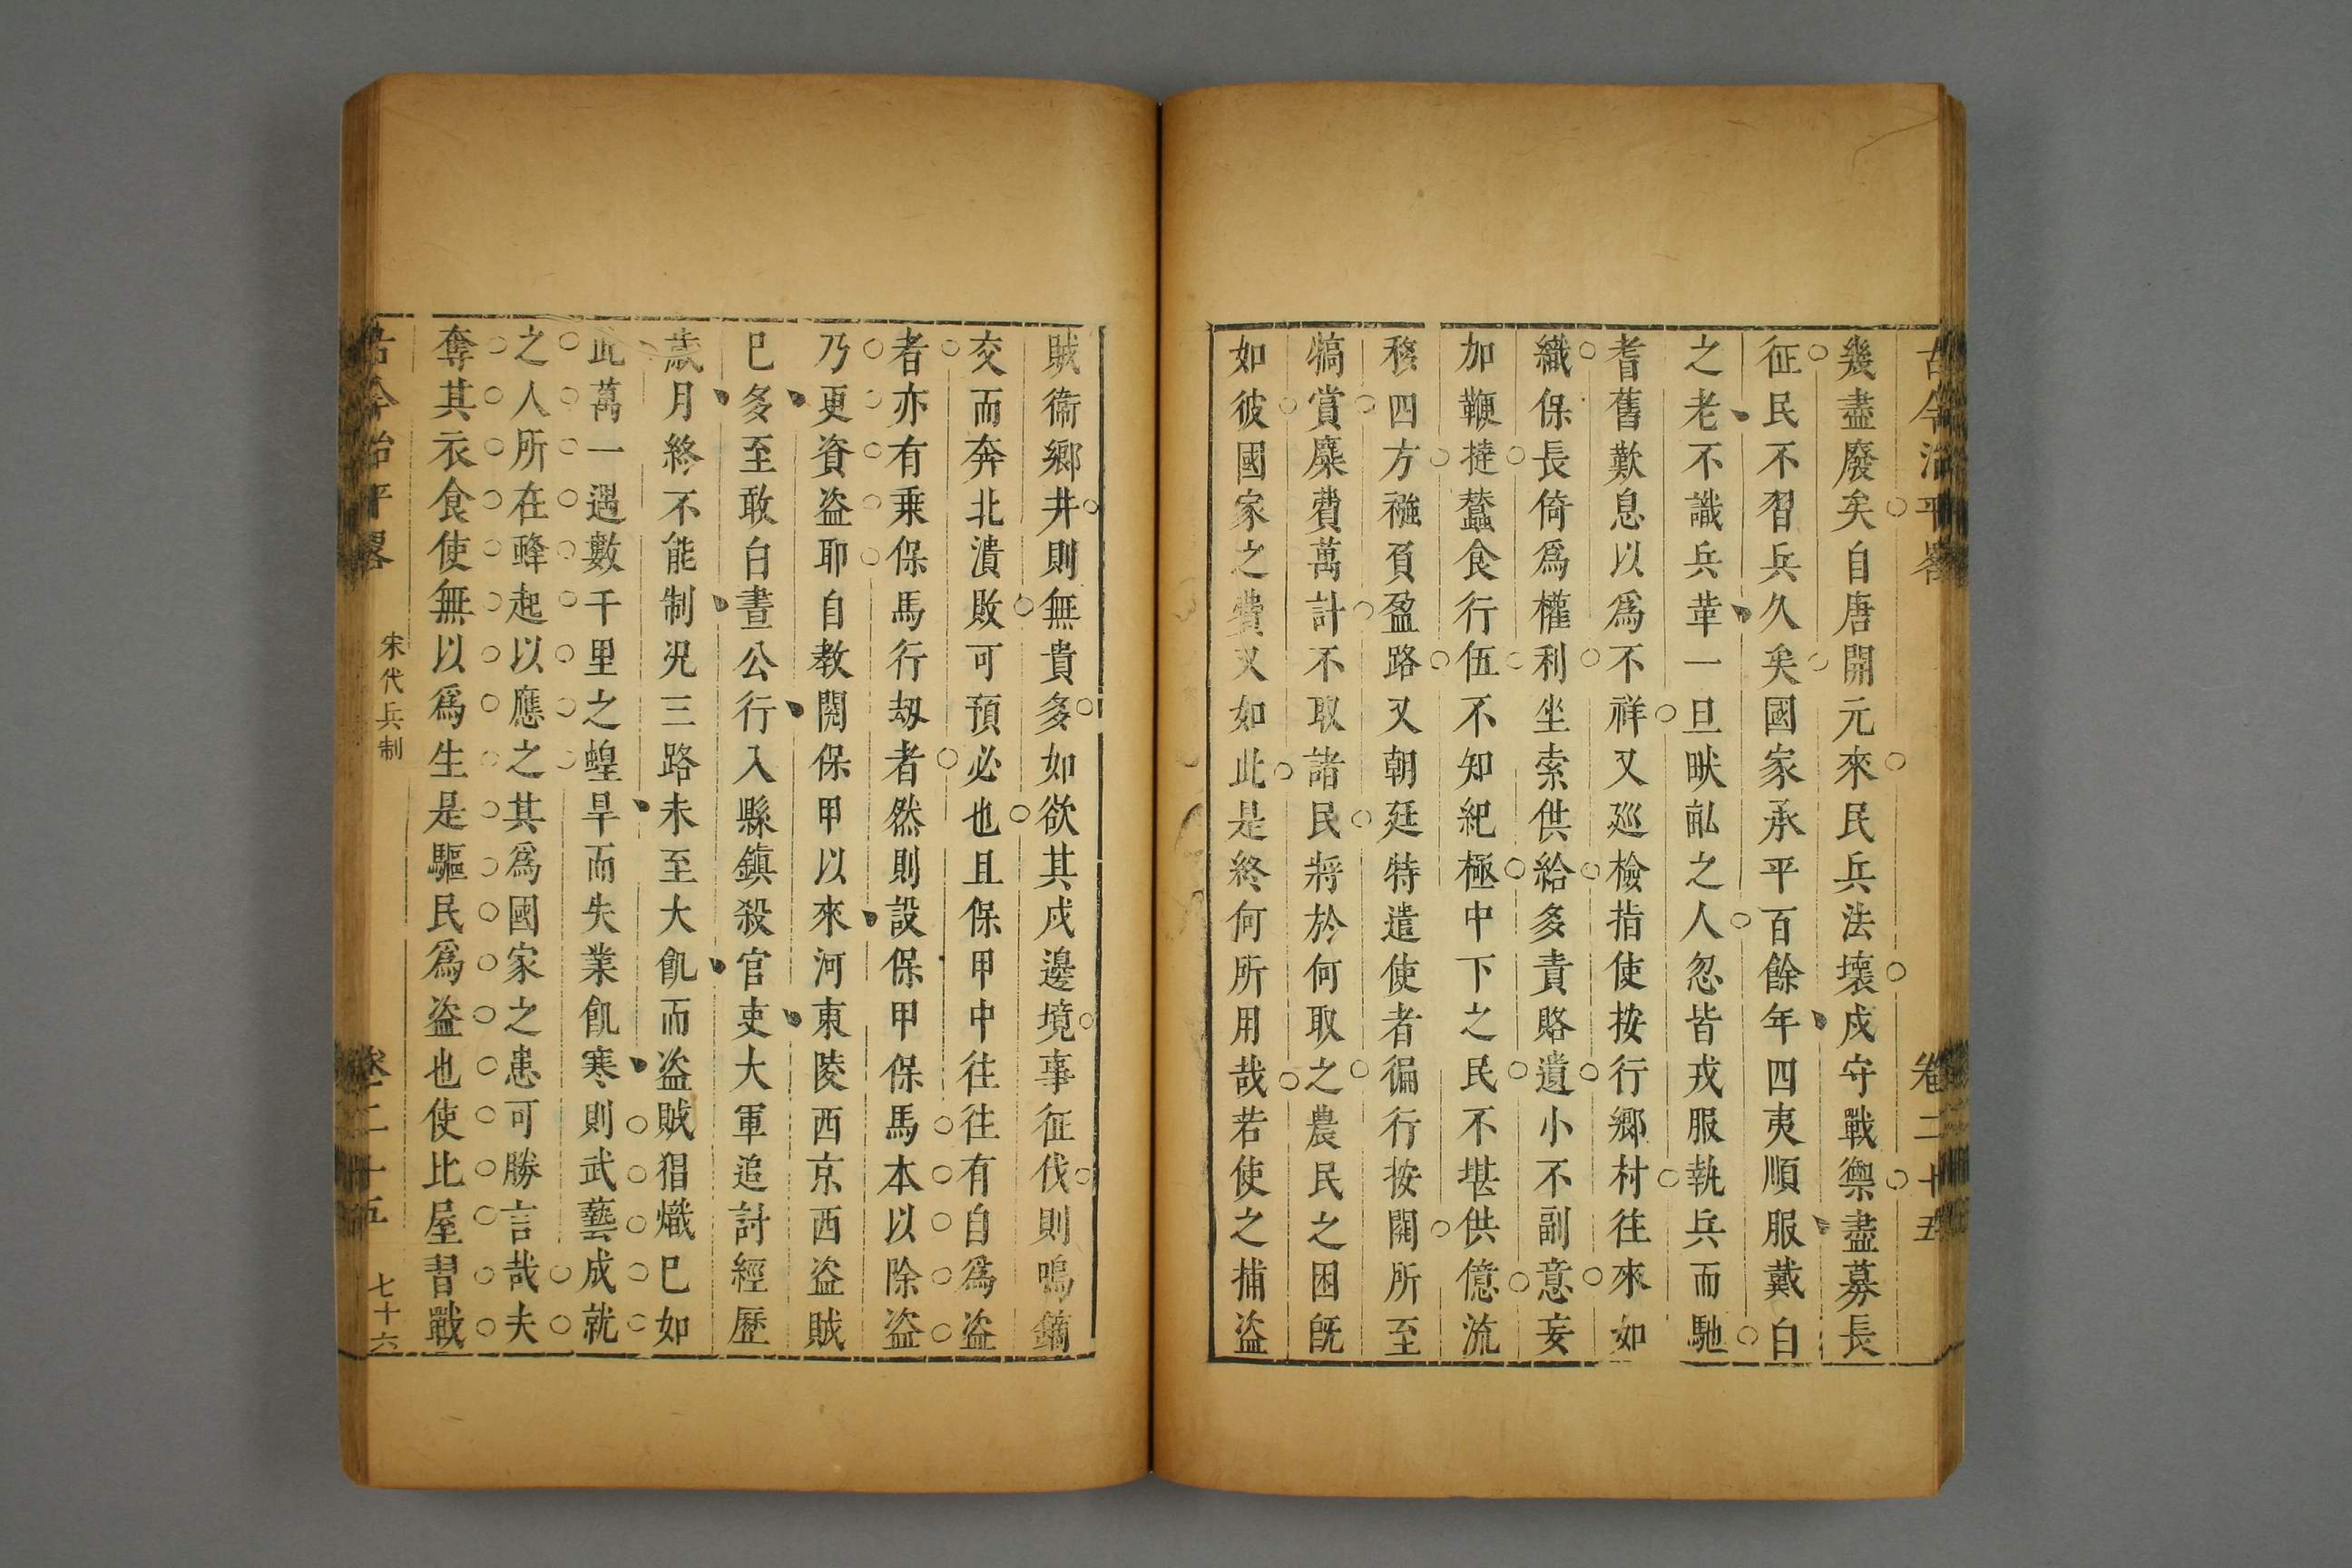 古今治平畧 卷二十五
幾盡廢矣自唐開元來民兵法壞戍守戰禦盡募長
征民不習兵久矣國家承平百餘年四夷順服戴白
之老不識兵革一旦畎畝之人忽皆戎服執兵而馳
耆舊歎息以爲不祥又廵檢指使按行鄉村往來如
織保長倚爲權利坐索供給多責賂遺小不副意妄
加鞭撻蠶食行伍不知紀極中下之民不堪供億流
移四方襁負盈路又朝廷特遣使者徧行按閱所至
犒賞糜費萬計不取諸民將於何取之農民之困旣
如彼國家之費又如此是終何所用哉若使之捕盜
賊衞鄉井則無貴多如欲其戍邊境事征伐則鳴鏑
交而奔北潰敗可預必也且保甲中往往有自爲盜
者亦有乗保馬行刼者然則設保甲保馬本以除盜
乃更資盜耶自教閱保甲以來河東陵西京西盜賊
巳多至敢白晝公行入縣鎮殺官吏大軍追討經歷
歲月終不能制况三路未至大飢而盜賊猖熾巳如
此萬一遇數千里之蝗旱而失業飢寒則武藝成就
之人所在蜂起以應之其爲國家之患可勝言哉夫
奪其衣食使無以爲生是驅民爲盜也使比屋習戰
古今治平畧 宋代兵制 卷二十五 七十六